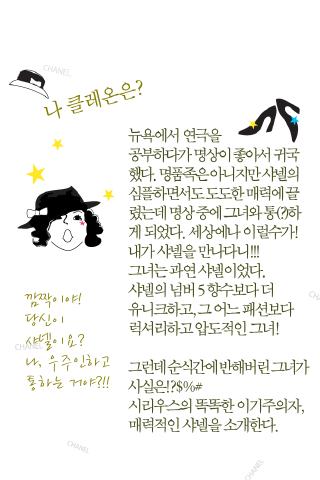 CHANEL
나 클레온은?
뉴욕에서 연극을
공부하다가 명상이 좋아서 귀국
했다. 명품족은 아니지만 샤넬의
심플하면서도 도도한 매력에 끌
렸는데 명상 중에 그녀와 통(?)하
게 되었다. 세상에나 이럴수가!
내가 샤넬을 만나다니!!!
그녀는 과연 샤넬이었다.
샤넬의 넘버 5 향수보다 더
유니크하고, 그 어느 패션보다
럭셔리하고 압도적인 그녀!
그런데 순식간에 반해버린 그녀가
사실은!?$%#
시리우스의 똑똑한 이기주의자,
매력적인 샤넬을 소개한다.
깜짝이야!
당신이
샤넬이요?
나, 우주인하고
통하는 거야?!!
CHANEL
CHANEL
CHANEL